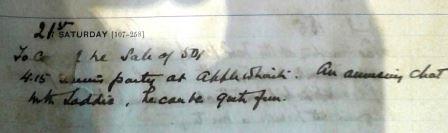 21st SATURDAY [107-258]
To C the Sale of
4.15 party at Applethwaite. An amusing chat
with Laddie, he can be quite fun.